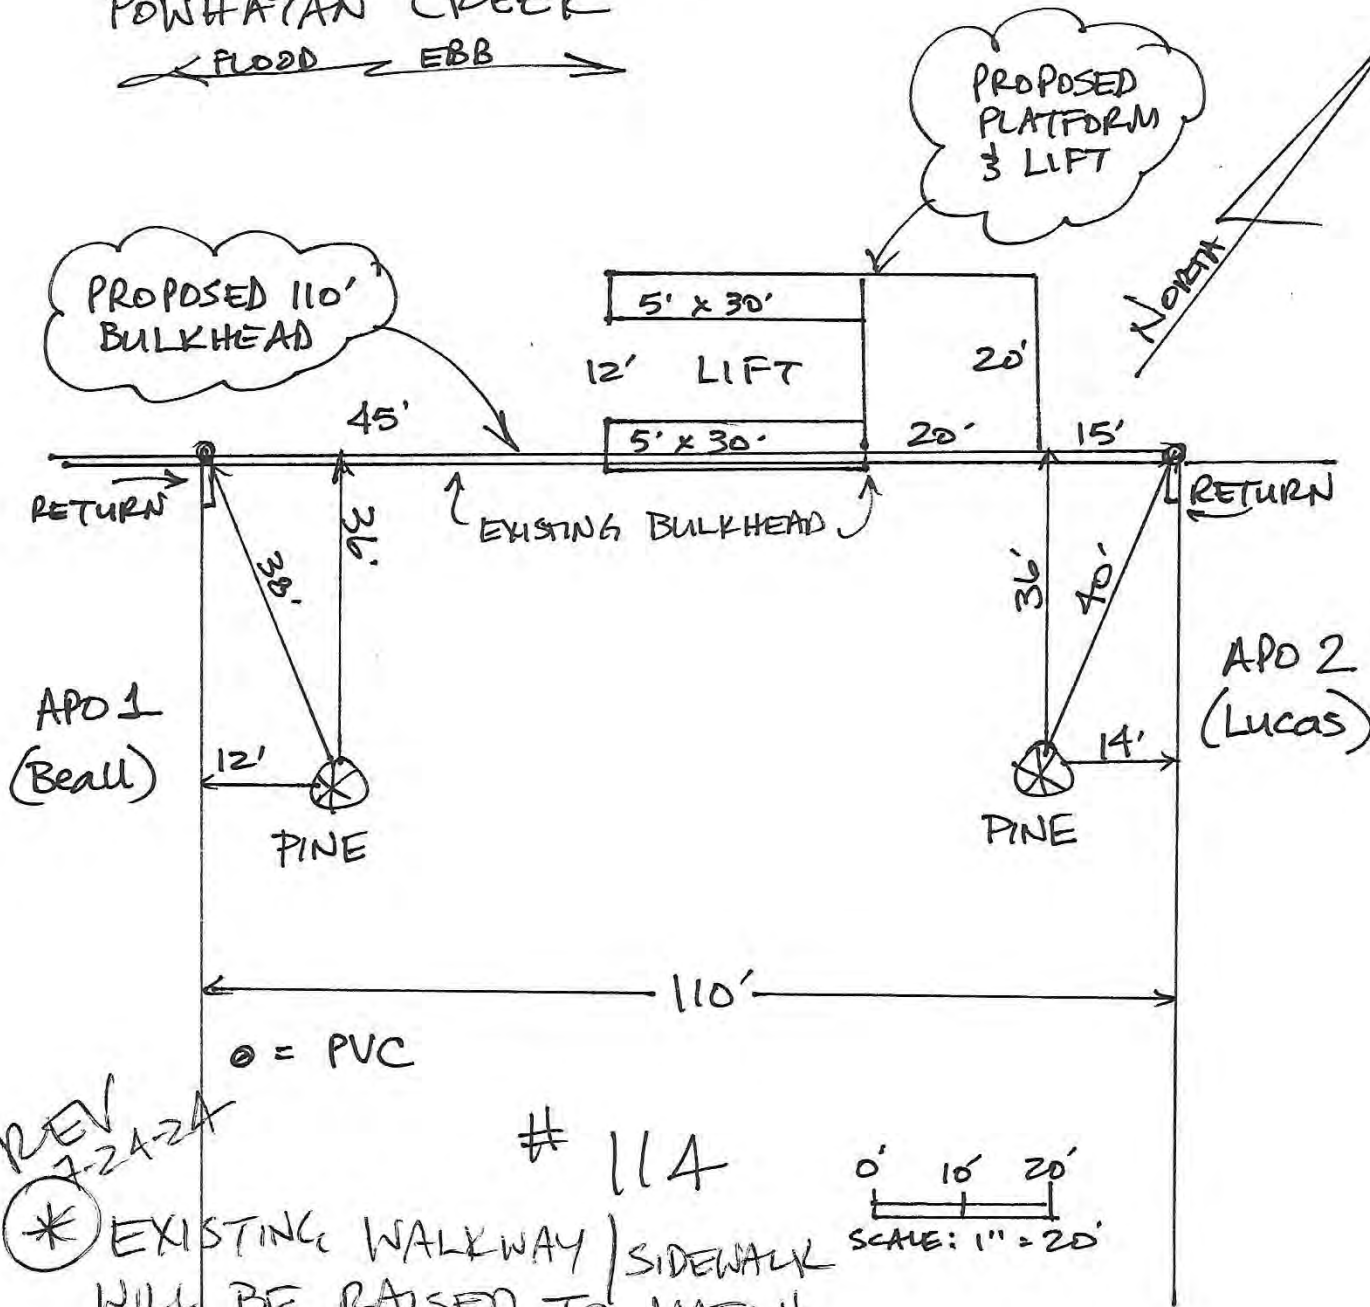 POWHATAN CREEK
FLOOD EBB
PROPOSED
PLATFORM
& LIFT
NORTH
PROPOSED 110'
BULKHEAD
5' x 30'
12' LIFT
20'
45'
5' x 30'
20'
15'
RETURN
EXISTING BULKHEAD
RETURN
38'
36'
36'
40'
APO 1
(Beall)
APO 2
(Lucas)
12'
14'
PINE
PINE
110'
= PVC
REV
7-24-24
# 114
0' 10' 20'
SCALE: 1" = 20'
* EXISTING WALKWAY / SIDEWALK
WILL BE RAISED TO MATCH